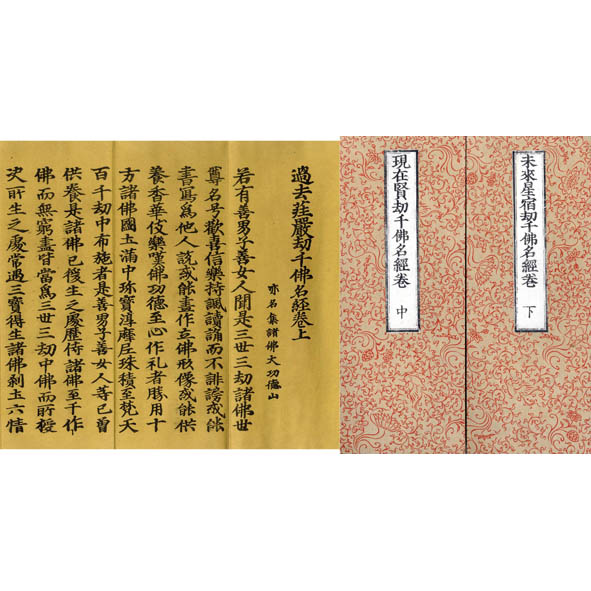 過去莊嚴劫千佛名經卷上
亦名集諸佛大功德山
若有善男子善女人聞是三世三劫諸佛世
尊名号歡喜信樂持諷讀誦而不誹謗或能
書寫為他人說或能畫作立佛形像或能供
養香華伎樂嘆佛功德至心作礼者勝用十
方諸佛國土滿中珎寶淳摩尼珠積至梵天
百千劫中布施者是善男子善女人等已曾
供養是諸佛已後生之處歷侍諸佛至千作
佛而無窮盡皆當爲三世三劫中佛而所授
决所生之處常遇三寶得生諸佛剎土六情
現在賢劫千佛名經卷 中
未來星宿劫千佛名經卷 下